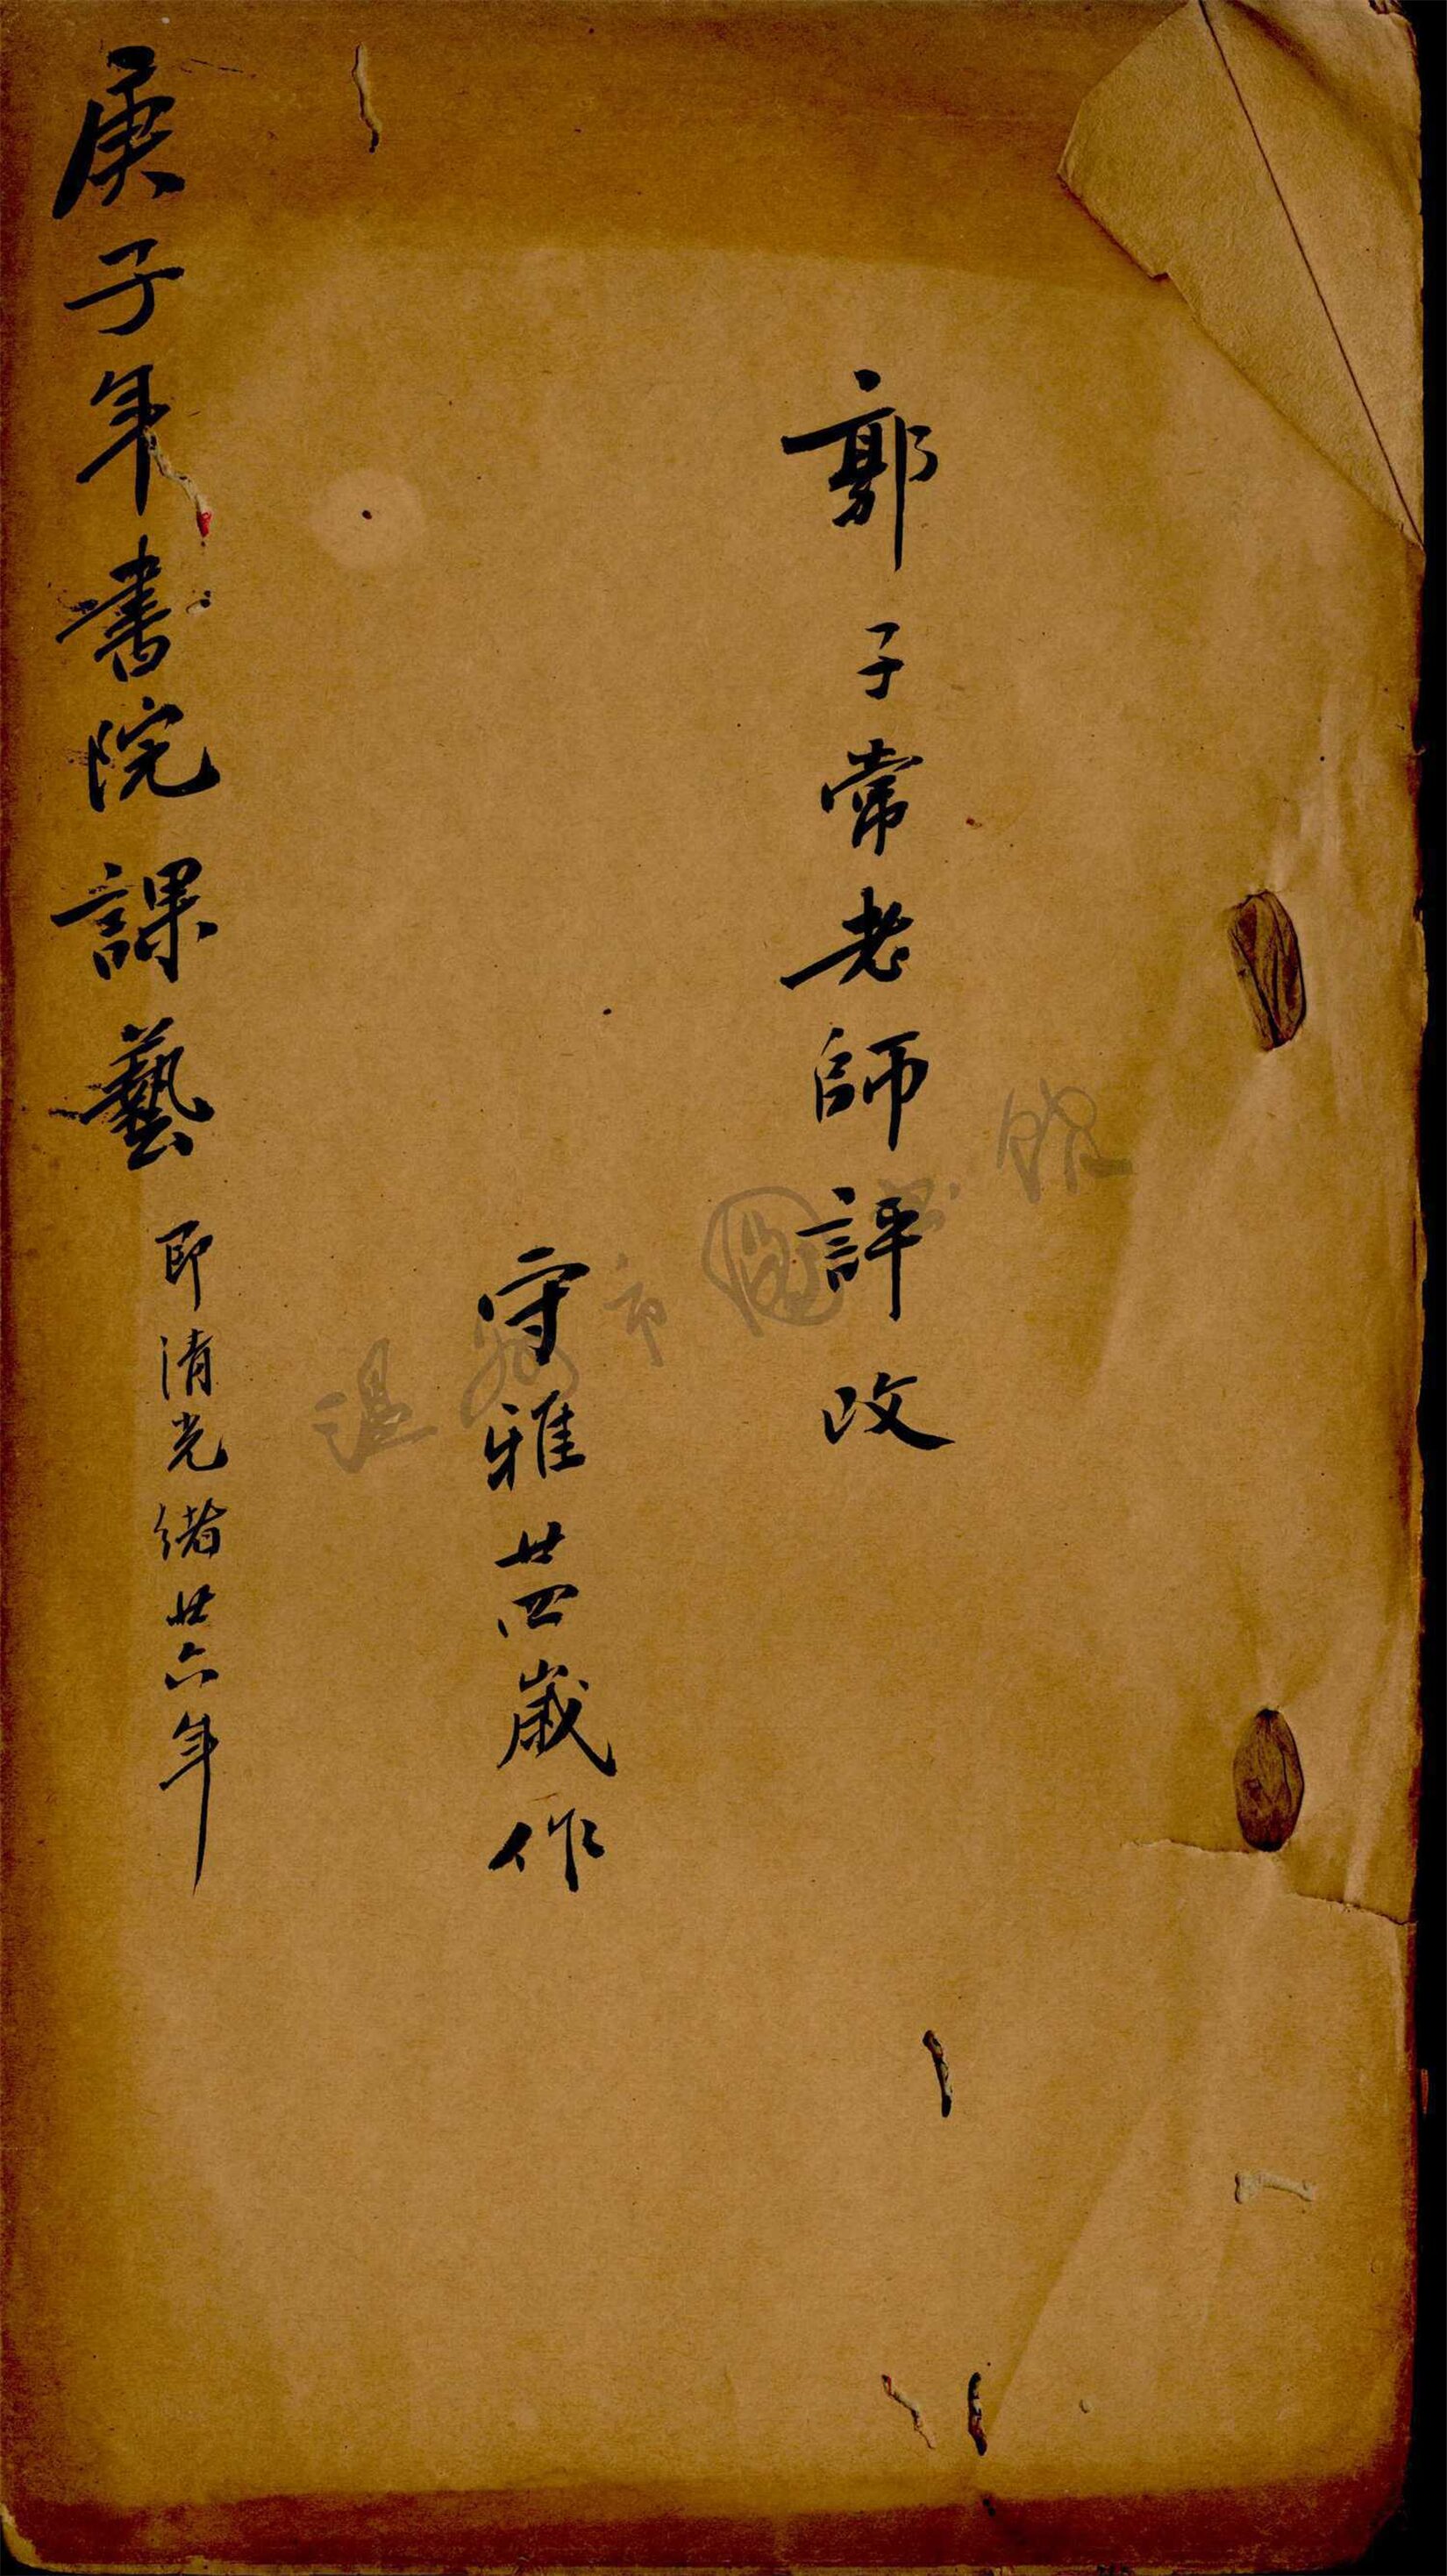 郭子常老師評改
守雅廿四歲作
庚子年書院課藝 即清光緒廿六年
溫州市圖書館